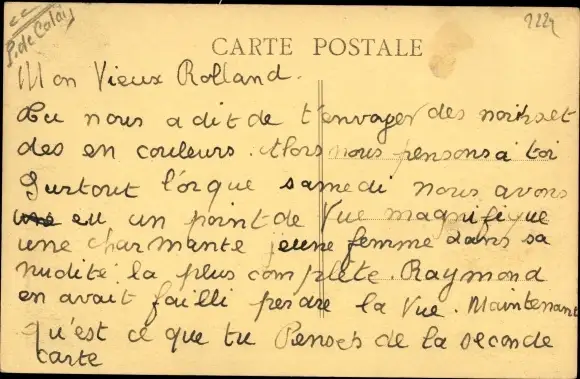 P. de Calais
222
CARTE POSTALE
Mon Vieux Rolland.
Tu nous a dit de t'envoyer des noirs et
des en couleurs. Alors nous pensons a toi
Surtout l'orque samedi nous avons
eu un point de vue magnifique
une charmante jeune femme dans sa
nudité la plus complète. Raymond
en avait failli perdre la vue. Maintenant
qu'est ce que tu Penses de la seconde
carte